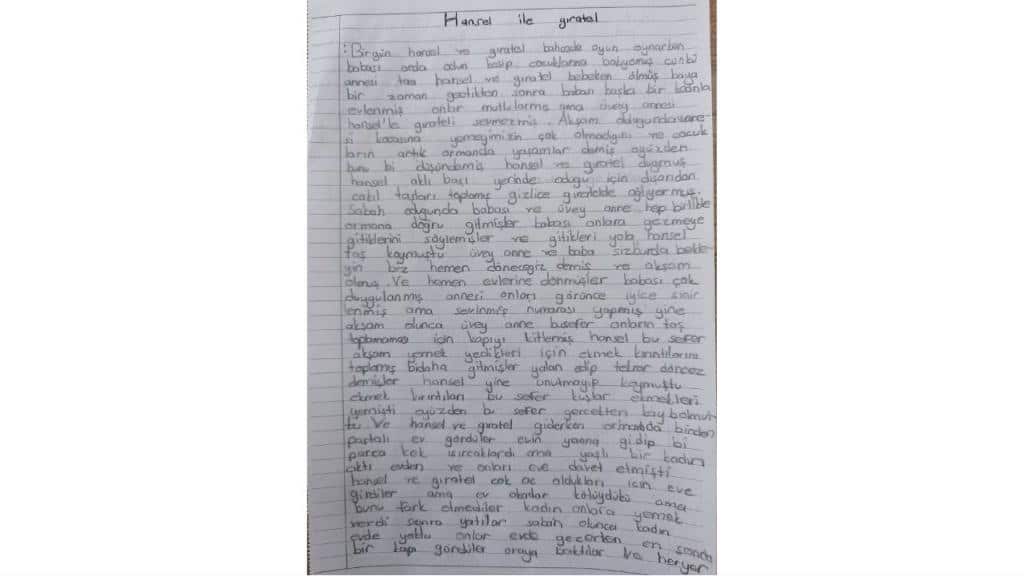 Hansel ile gıratel
Birgün hansel ve gıratel bahcede oyun oynarken
babası orda odun kesip cocuklarına bakıyomuş cünkü
annesi taa hansel ve gıratel bebeken ölmüş baya
bir zaman geçtikten sonra babası başka bir kadınla
evlenmiş onlar mutlularmış ama üvey annesi
hansel'le gırateli sevmezmiş. Akşam olduğunda
si kocasına yemeğimizin çok olmadığını ve cocuk
ların artık ormanda yaşasınlar demiş oyüzden
bunu bi düşündemiş hansel ve gıratel duymuş
hansel aklı başı yerinde oduğu için dışarıdan
cakıl taşları toplamış gizlice gıratelde ağlıyormuş.
Sabah oduğunda babası ve üvey anne hep birlikte
ormana doğru gitmişler babası onlara gezmeye
gitiklerini söylemişler ve gitikleri yola hansel
taş koymuştu üvey anne ve baba siz burda bekle
yin biz hemen döneceğiz demiş ve akşam
olmuş. Ve hemen evlerine dönmüşler babası çok
duygulanmış annesi onları görünce iyice sinir
lenmiş ama sevinmiş numarası yapmış yine
akşam olunca üvey anne busefer onların taş
toplamaması için kapıyı kitlemiş hansel bu sefer
akşam yemek yedikleri için ekmek kırıntılarını
toplamış bidaha gitmişler yalan edip tekrar dönces
demişler hansel yine unutmayıp koymuştu
ekmek kırıntıları bu sefer kuşlar ekmekleri
yemişti oyüzden bu sefer gercekten kaybolmuş
tu Ve hansel ve gıratel giderken ormanda birden
pastalı ev gördüler evin yanına gidip bi
parca kek ısırcaklardı ama yaşlı bir kadın
çıktı evden ve onları eve davet etmişti
hansel ve gıratel cok ac oldukları icin eve
girdiler ama ev okadar kötüydükü ama
bunu fark etmediler kadın onlara yemek
verdi sonra yatılar sabah olunca kadın
evde yoktu onlar evde gezerken en sonda
bir kapı gördüler oraya baktılar ve heryer